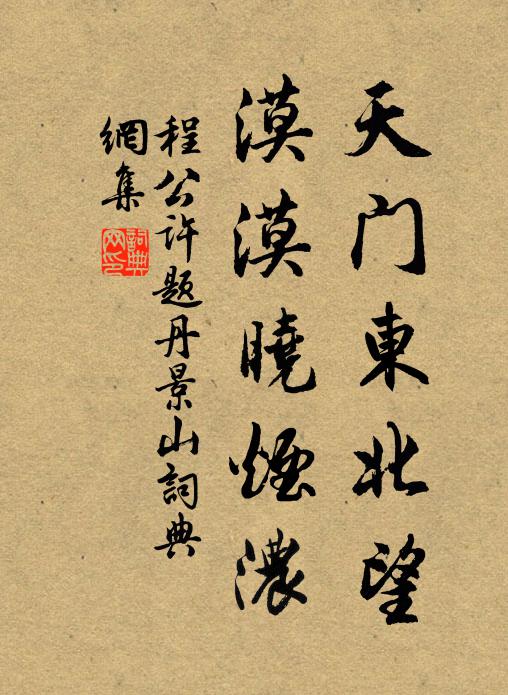 天门東北望
漠漠曉煙濃
程公许题丹景山詞典
網集
詞典网印